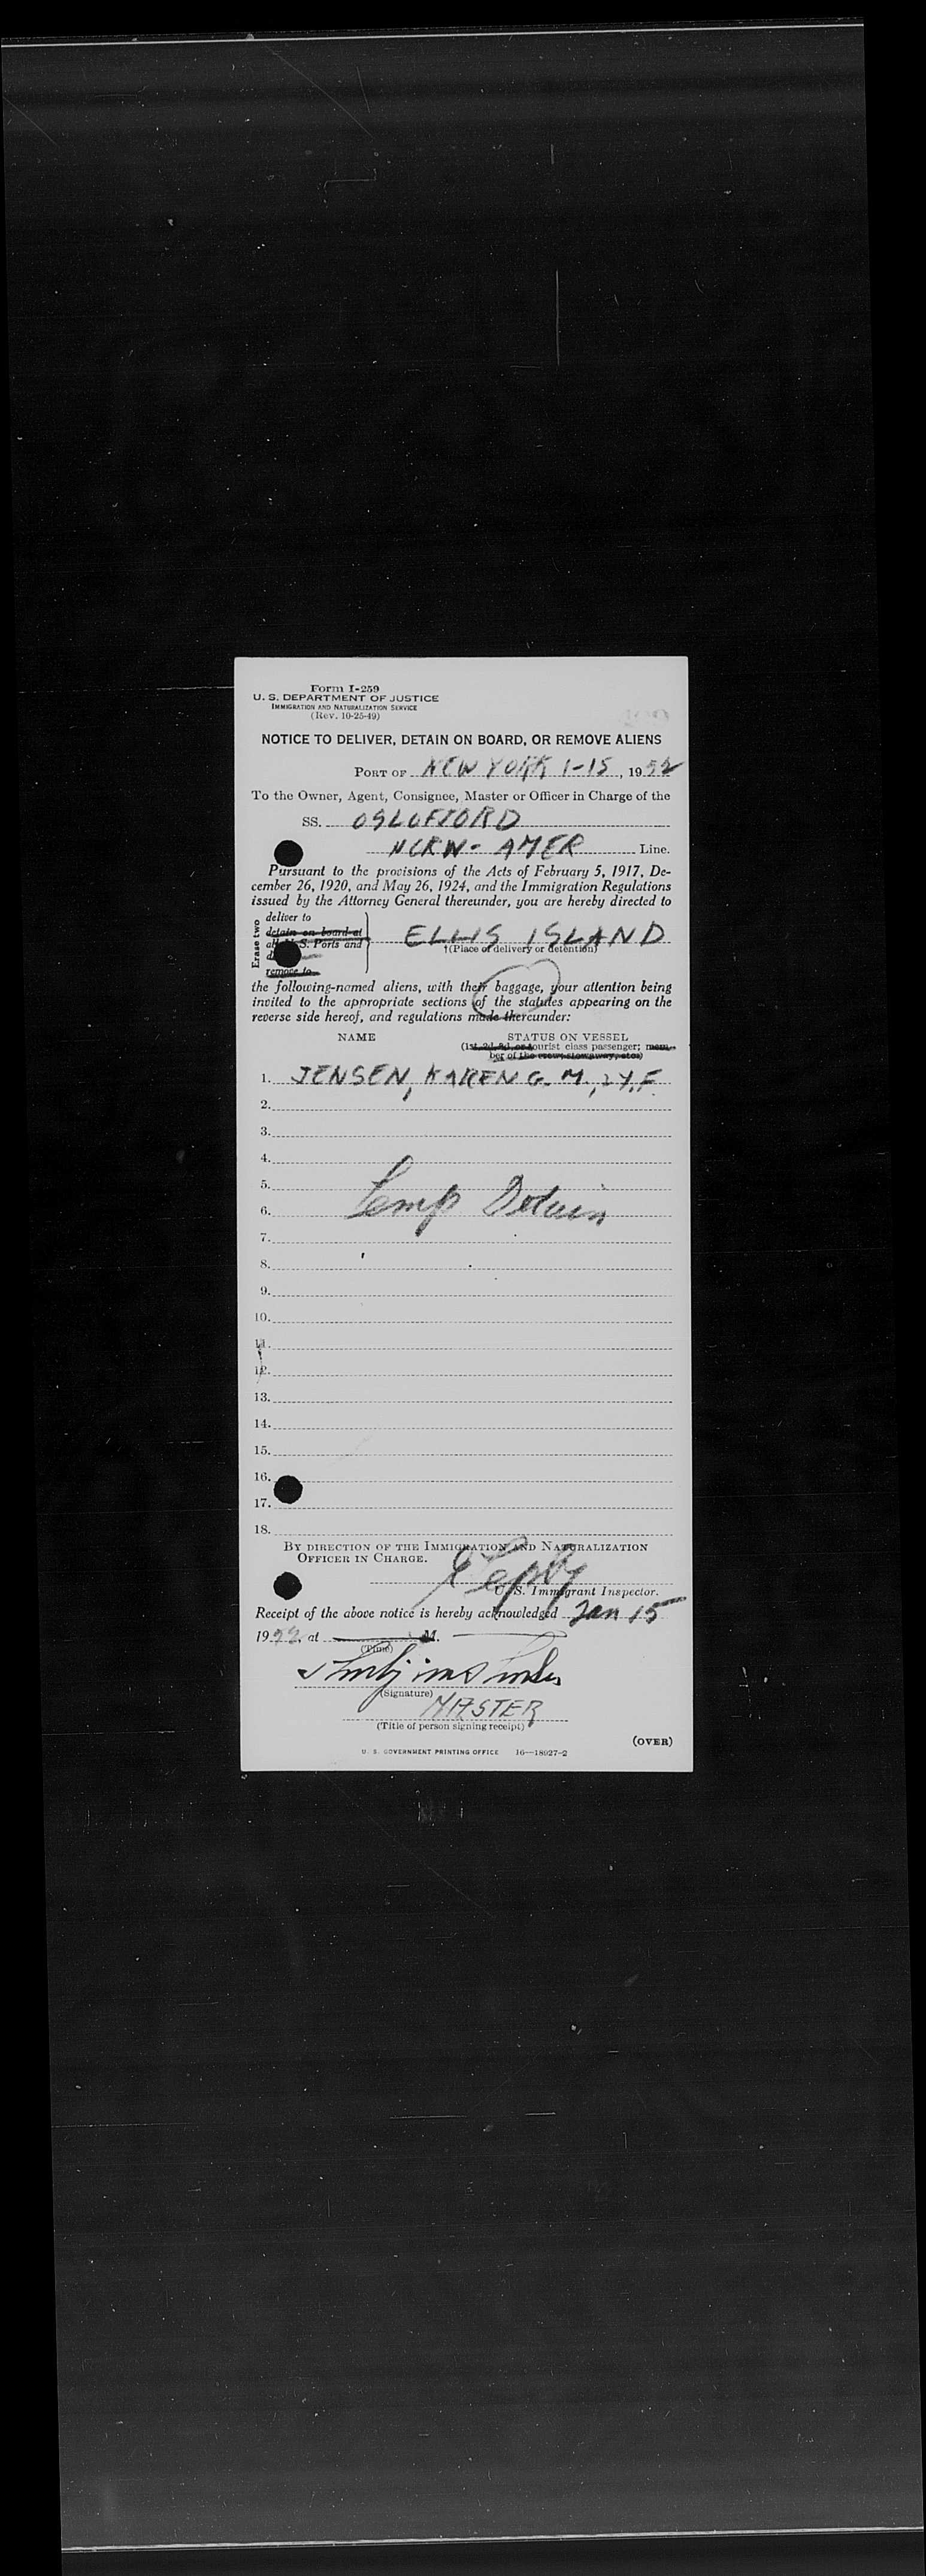 Form I-259
U. S. DEPARTMENT OF JUSTICE
IMMIGRATION AND NATURALIZATION SERVICE
(Rev. 10-25-49)
NOTICE TO DELIVER, DETAIN ON BOARD, OR REMOVE ALIENS
PORT OF NEW YORK 1-15, 1952
To the Owner, Agent, Consignee, Master or Officer in Charge of the
SS. OSLOFJORD
NORW- AMER Line.
Pursuant to the provisions of the Acts of February 5, 1917, De-
cember 26, 1920, and May 26, 1924, and the Immigration Regulations
issued by the Attorney General thereunder, you are hereby directed to
Erase two
deliver to
detain on board at
all U. S. Ports and
remove to
ELLIS ISLAND
†(Place of delivery or detention)
the following-named aliens, with their baggage, your attention being
invited to the appropriate sections of the statutes appearing on the
reverse side hereof, and regulations made thereunder:
NAME STATUS ON VESSEL
(1st, 2d, 3d, or tourist class passenger; mem-
ber of the crew, stowaway, etc.)
1. JENSEN, KAREN G. M., 24, F.
2.
3.
4.
5.
6. Temp Detain
7.
8.
9.
10.
11.
12.
13.
14.
15.
16.
17.
18.
BY DIRECTION OF THE IMMIGRATION AND NATURALIZATION
OFFICER IN CHARGE.
U. S. Immigrant Inspector.
Receipt of the above notice is hereby acknowledged Jan 15
1952, at M.
(Time)
(Signature)
MASTER
(Title of person signing receipt)
(OVER)
U. S. GOVERNMENT PRINTING OFFICE 16—18027-2